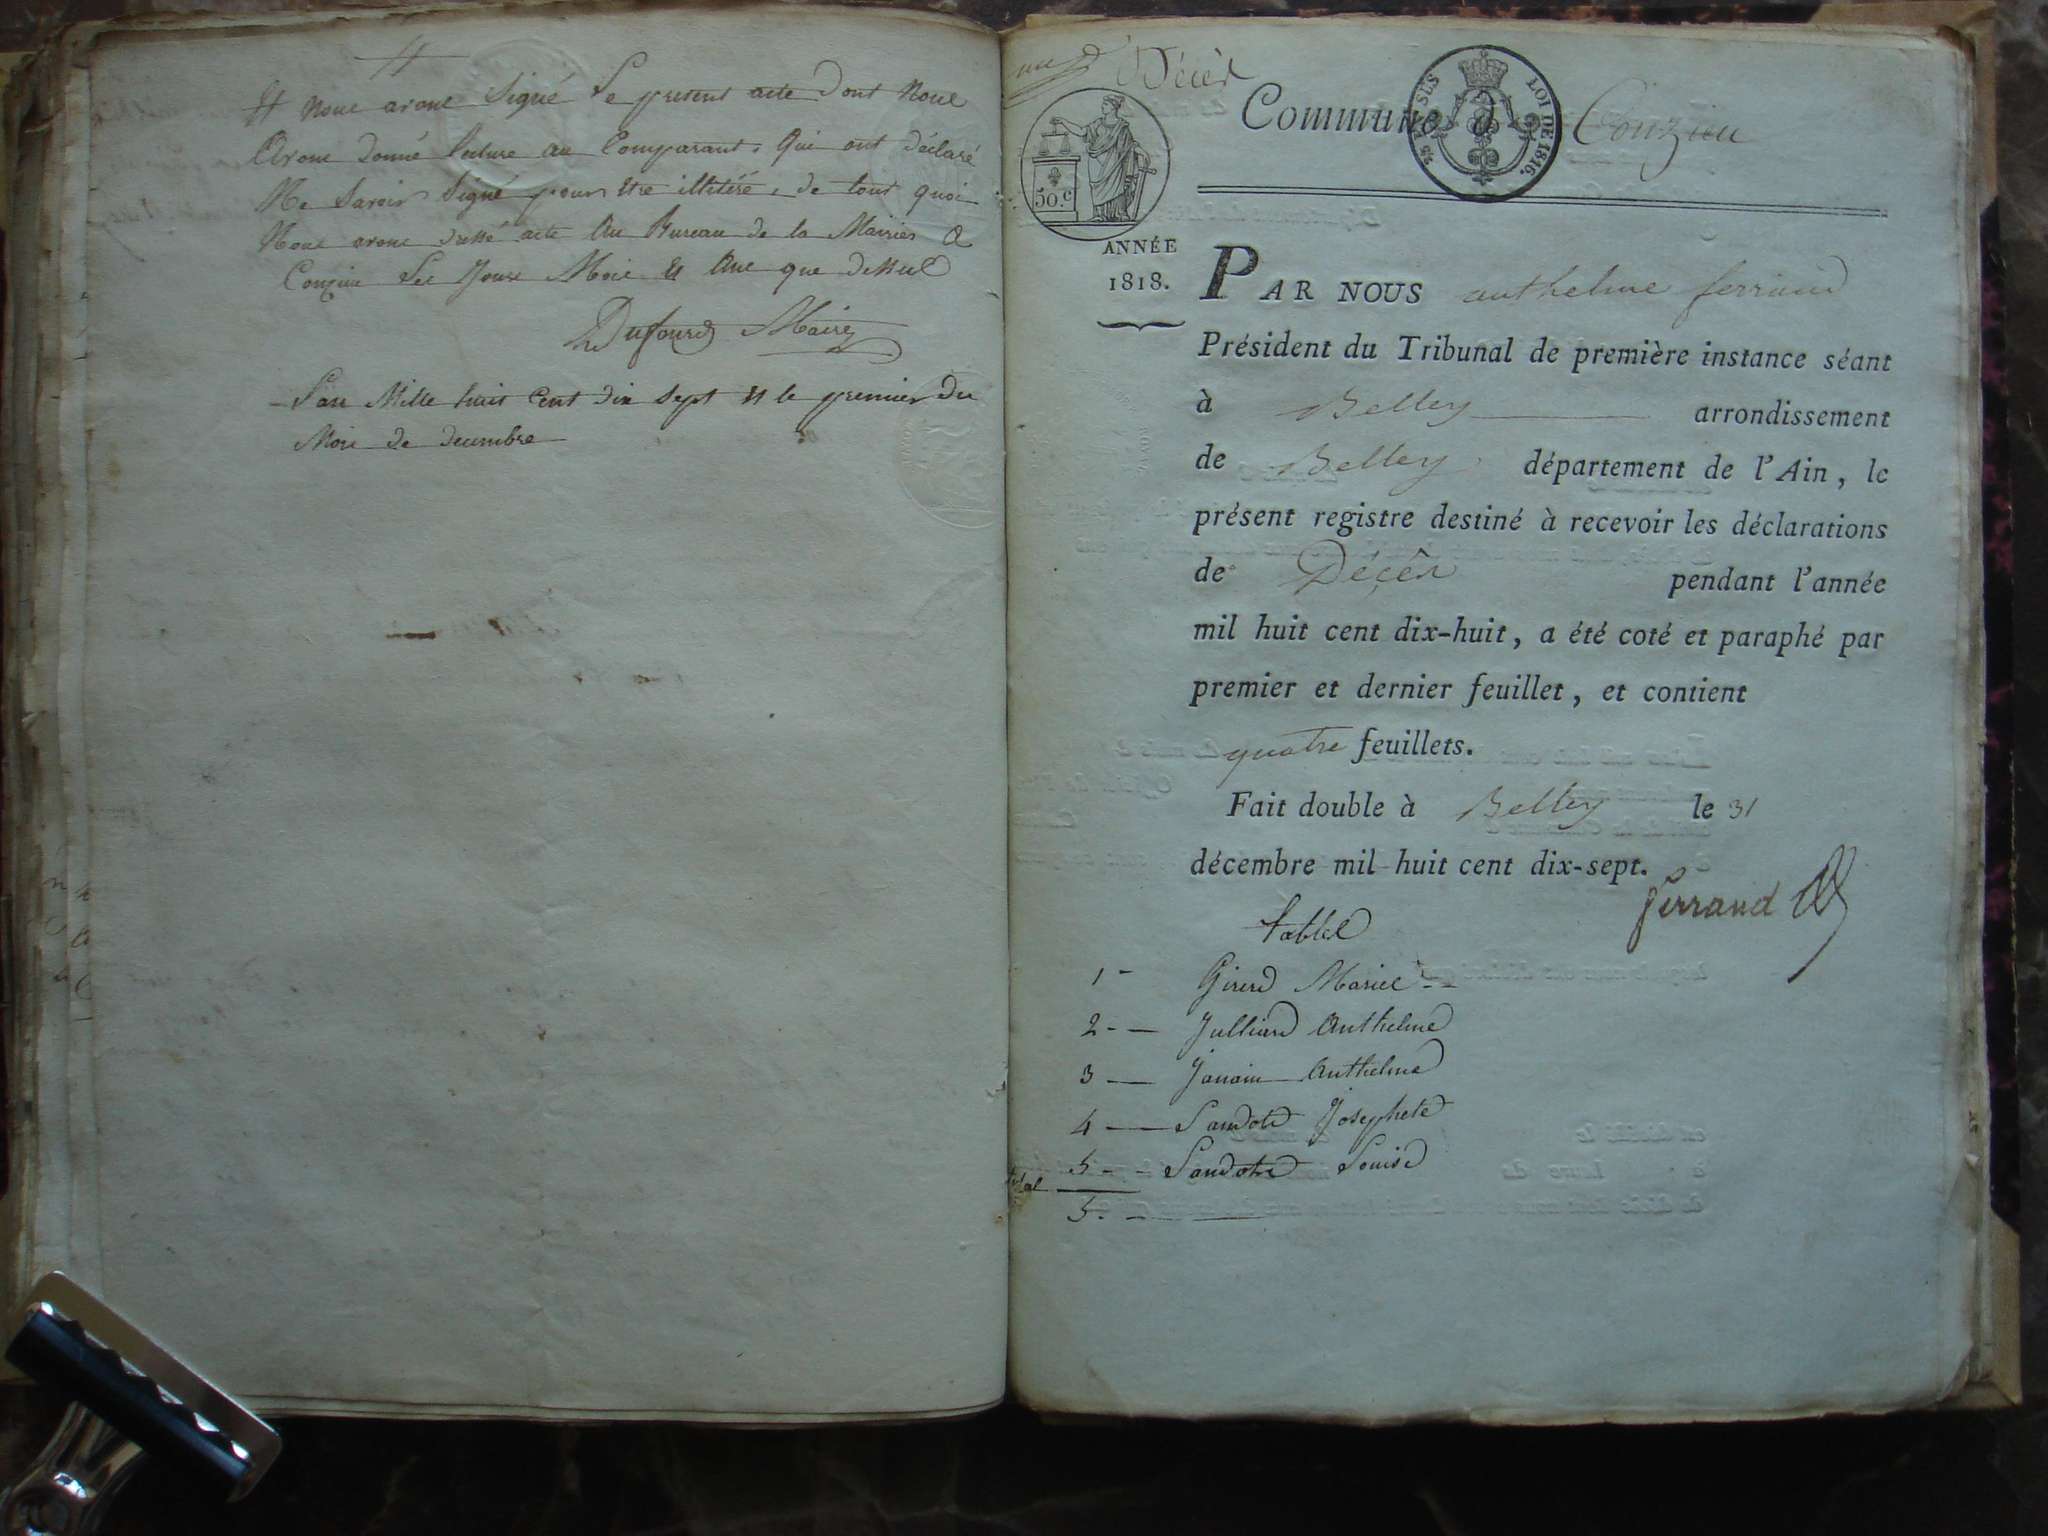 nous avons signé le present acte dont nous
Avons donné lecture au Comparants, Qui ont déclaré
Ne Savoir Signé pour etre illitéré, de tout quoi
Nous avons dressé acte Au Bureau de la Mairie a
Conzieu Les Jours Mois et Ans que dessus
Dufour Maire
L'an Mille huit Cent dix sept et le premier du
Mois de decembre
Décès
Commune d Conzieu
25 C. SES
LOI DE 1816.
50.c
ANNÉE
1818.
PAR NOUS anthelme ferrand
Président du Tribunal de première instance séant
à Belley arrondissement
de Belley département de l'Ain, le
présent registre destiné à recevoir les déclarations
de Décès pendant l'année
mil huit cent dix-huit, a été coté et paraphé par
premier et dernier feuillet, et contient
quatre feuillets.
Fait double à Belley le 31
décembre mil huit cent dix-sept.
ferrand
Table
1 - Girerd Marie
2 - - Julliard Anthelme
3 — Janain Anthelme
4 — Josephete
5 - - Louise
total
5. -